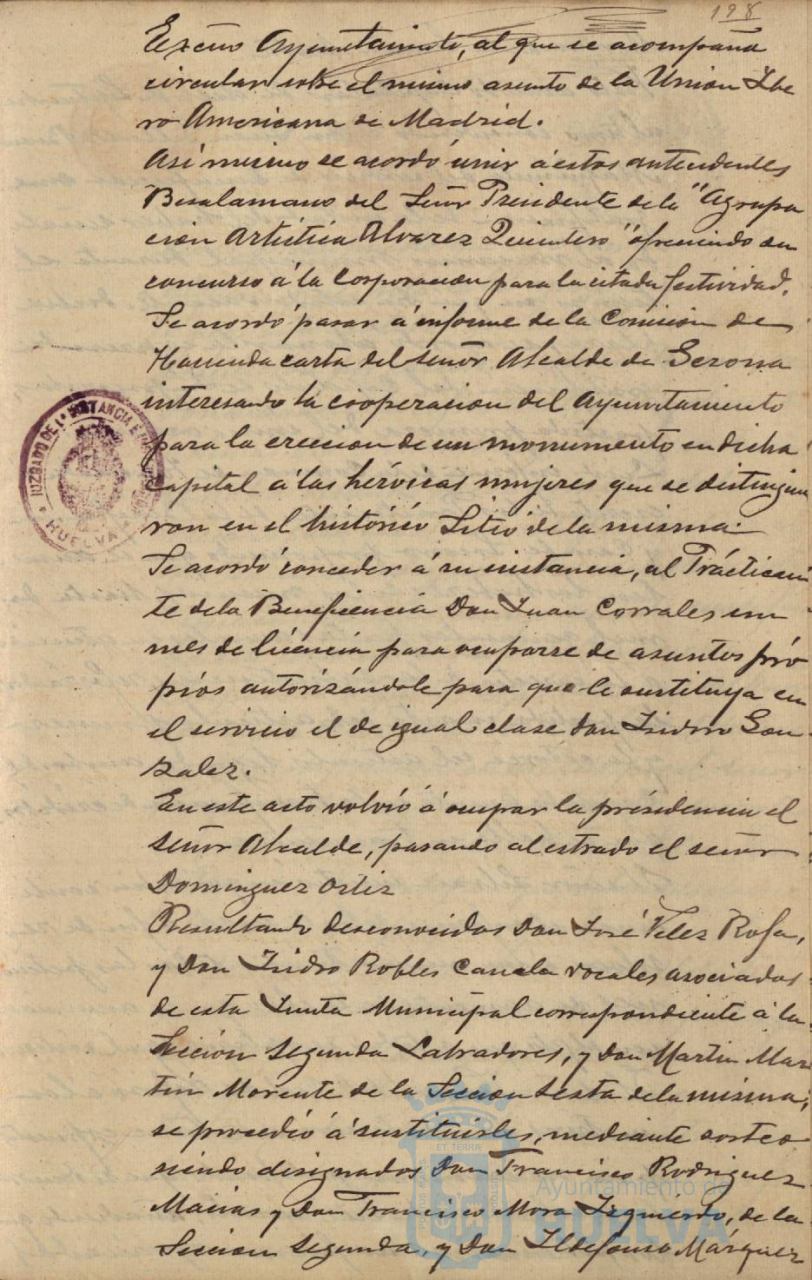 198
Excmo Ayuntamiento, al que se acompaña
circular sobre el mismo asunto de la Union Ibe
ro Americana de Madrid.
Asi mismo se acordó unir á estos antecedentes
Besalamano del Señor Presidente de la "Agrupa
cion Artistica Alvarez Quintero" ofreciendo su
concurso á la Corporacion para la citada festividad.
Se acordó pasar á informe de la Comision de
Hacienda carta del señor Alcalde de Gerona
interesando la cooperacion del Ayuntamiento
para la ereccion de un monumento en dicha
capital á las heróicas mujeres que se distinguie
ron en el histórico Sitio de la misma.
Se acordó conceder á su instancia, al Practican
te de la Beneficencia Don Juan Corrales un
mes de licencia para ocuparse de asuntos pro
pios autorizándole para que le sustituya en
el servicio el de igual clase Don Isidro Gon
zalez.
En este acto volvió á ocupar la presidencia el
señor Alcalde, pasando al estrado el señor
Dominguez Ortiz
Resultando desconocidos Don José Velez Rofa,
y Don Isidro Robles Canela vocales asociados
de esta Junta Municipal correspondiente á la
Sección Segunda Labradores, y Don Martin Mar
tin Morente de la Seccion Sesta de la misma,
se procedió á sustituirles, mediante sorteo
siendo designados Don Francisco Rodriguez
Macias y Don Francisco Mora Izquierdo, de la
Seccion Segunda, y Don Ildefonso Márquez
JUZGADO DE 1ª INSTANCIA
HUELVA
Ayuntamiento de
HUELVA